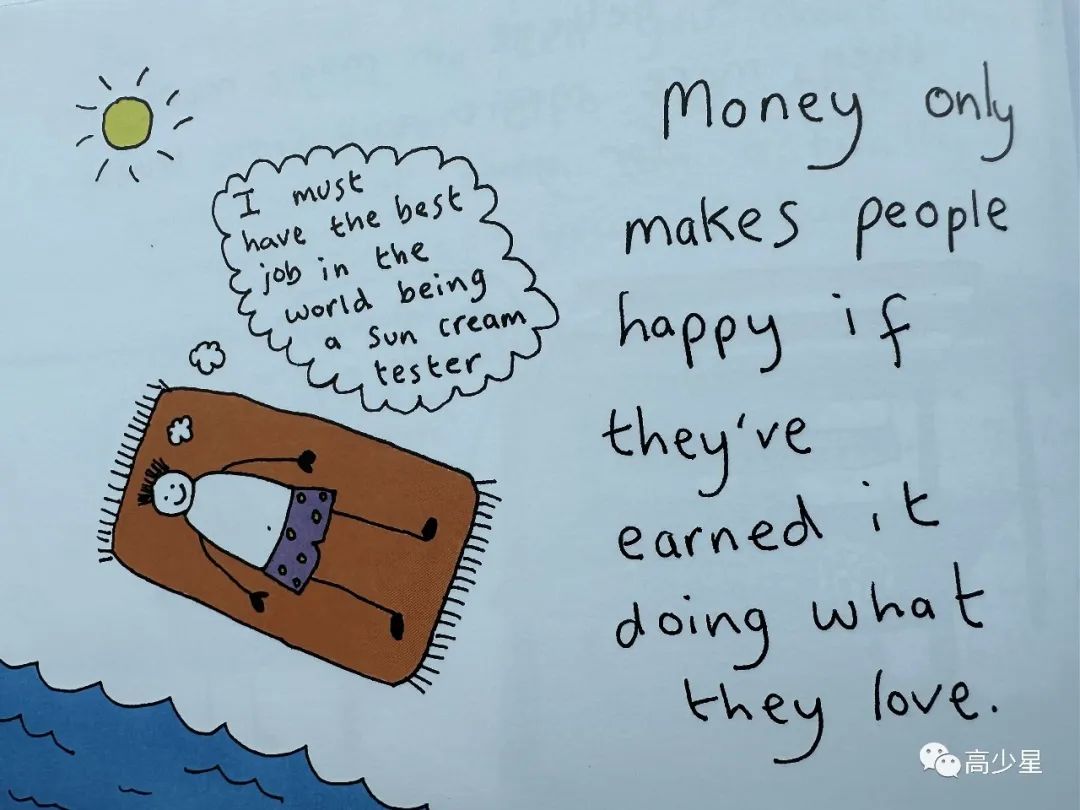 I must
have the best
job in the
world being
a sun cream
tester
Money only
makes people
happy if
they've
earned it
doing what
they love.
高少星